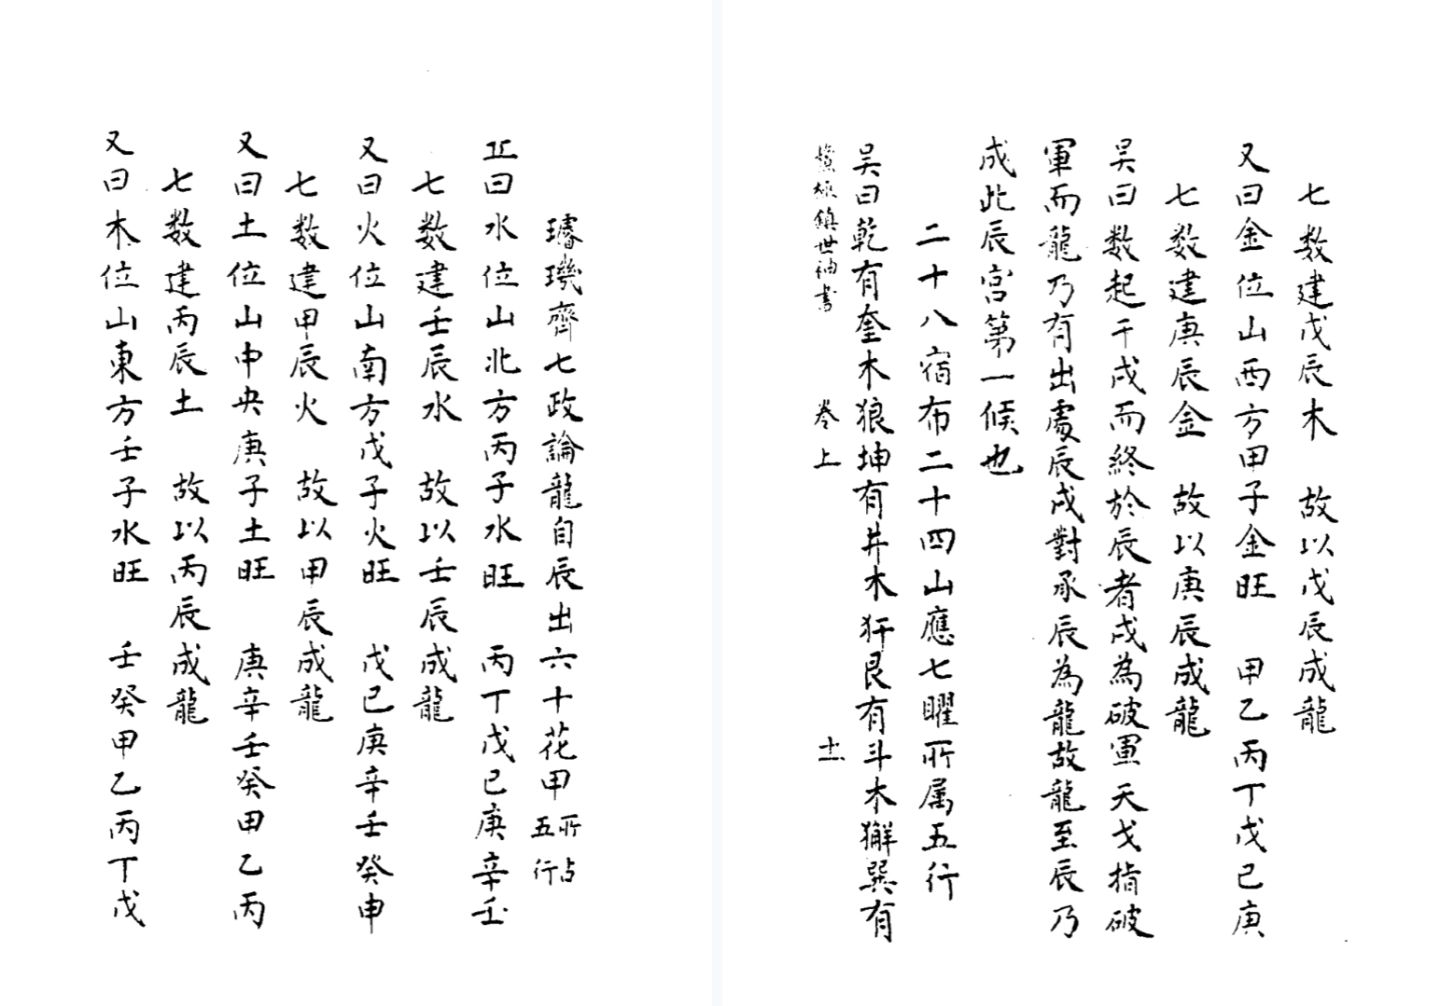 璿璣齊七政論龍自辰出六十花甲所占五行
丘曰水位山北方丙子水旺 丙丁戊己庚辛壬
七数建壬辰水 故以壬辰成龍
又曰火位山南方戊子火旺 戊己庚辛壬癸申
七数建甲辰火 故以甲辰成龍
又曰土位山中央庚子土旺 庚辛壬癸甲乙丙
七数建丙辰土 故以丙辰成龍
又曰木位山東方壬子水旺 壬癸甲乙丙丁戊
七数建戊辰木 故以戊辰成龍
又曰金位山西方甲子金旺 甲乙丙丁戊己庚
七数建庚辰金 故以庚辰成龍
吴曰数起于戌而終於辰者戌為破軍天戈指破
軍而龍乃有出處辰戌對承辰為龍故龍至辰乃
成此辰宫第一候也
二十八宿布二十四山應七曜所属五行
吴曰乾有奎木狼坤有井木犴艮有斗木獬巽有
鎮世神書 卷上 十一